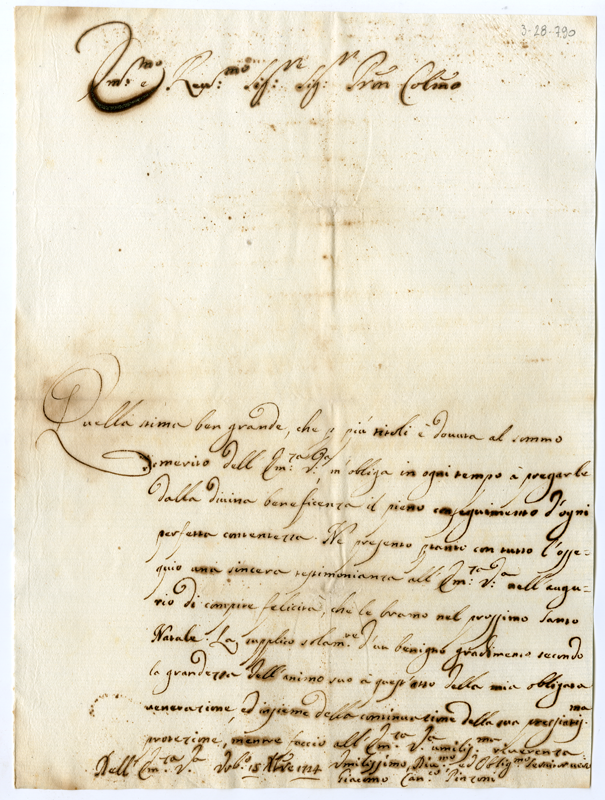 3-28-790
Em.mo e Rev.mo Sig.re Sig.r Pron Col.mo
Quella stima ben grande, che p più titoli è dovuta al sommo
merito dell'Em.za V.a, m'obliga in ogni tempo à pregarle
dalla divina beneficenza il pieno conseguimento d'ogni
perfetta contentezza. Ne presento ptanto con tutto l'osse-
quio una sincera testimonianza all'Em.za V.a nell'augu-
rio di compite felicità, che le bramo nel prossimo Santo
Natale. La supplico solam.te d'un benigno gradimento secondo
la grandezza dell'animo suo à quest'atto della mia obligata
venerazione, ed insieme della continuazione della sua pregiatis.ma
protezione, mentre faccio all'Em.za V.a umilis.ma riverenza
Dell'Em.za V.a Bol.a 15 Xbre 1724 Umilissimo, Div.mo ed Oblig.mo Servitore
Giacomo Can.co Pinzoni